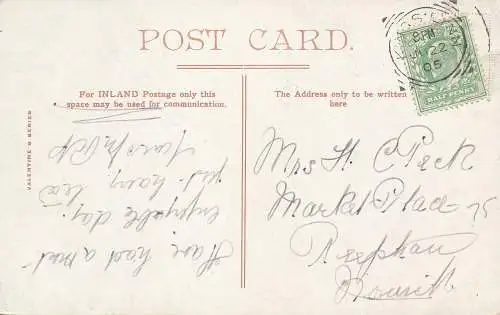 POST CARD.
For INLAND Postage only this
space may be used for communication.
The Address only to be written
here
VALENTINE'S SERIES
8 PM
22
05
HALFPENNY
Have had a most
enjoyable day.
just having tea
Yours
Mrs H. C Peck
Market Place
Reepham
Norwich